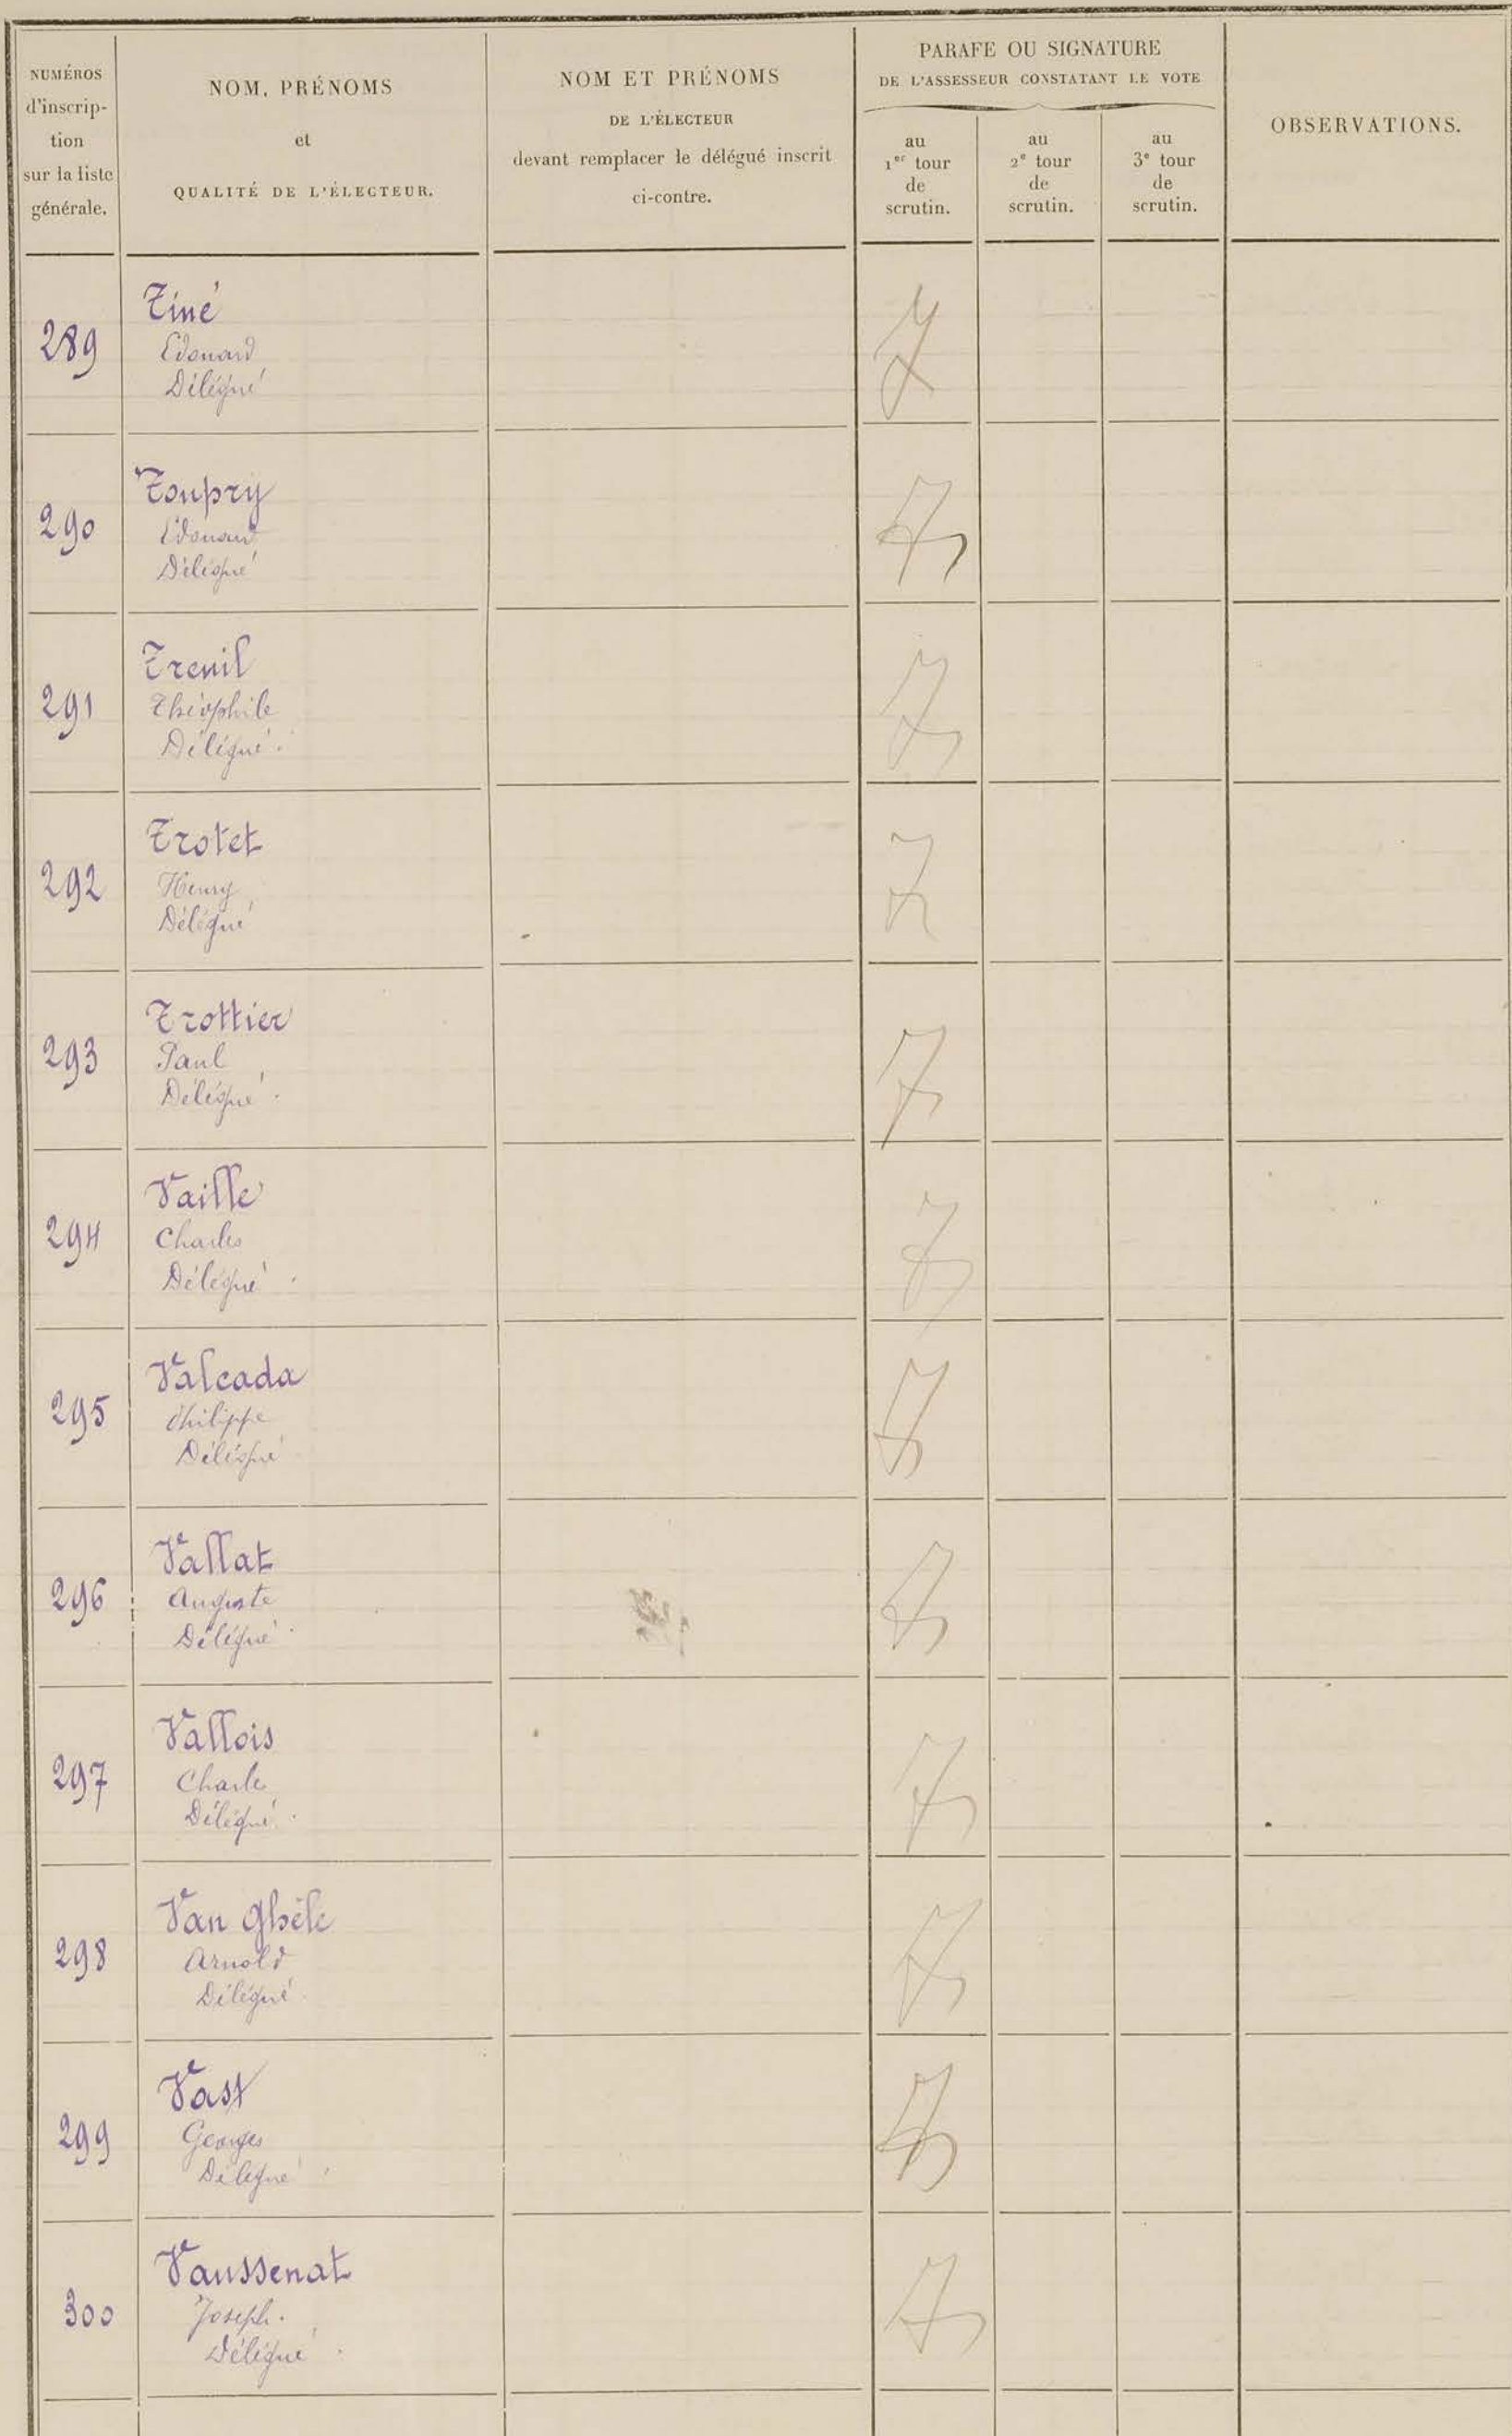 NUMÉROS
d'inscrip-
tion
sur la liste
générale.
NOM, PRÉNOMS
et
QUALITÉ DE L'ÉLECTEUR.
NOM ET PRÉNOMS
DE L'ÉLECTEUR
devant remplacer le délégué inscrit
ci-contre.
PARAFE OU SIGNATURE
DE L'ASSESSEUR CONSTATANT LE VOTE
au
1er tour
de
scrutin.
au
2e tour
de
scrutin.
au
3e tour
de
scrutin.
OBSERVATIONS.
289
Tiné
Edouard
Délégué
290
Toupry
Edouard
Délégué
291
Treuil
Théophile
Délégué.
292
Trotet
Henry
Délégué
293
Trottier
Paul
Délégué.
294
Vaille
Charles
Délégué.
295
Valcada
Philippe
Délégué
296
Vallat
Auguste
Délégué.
297
Vallois
Charles
Délégué.
298
Van Ghèle
Arnold
Délégué.
299
Vast
Georges
Délégué.
300
Vaussenat
Joseph.
Délégué.